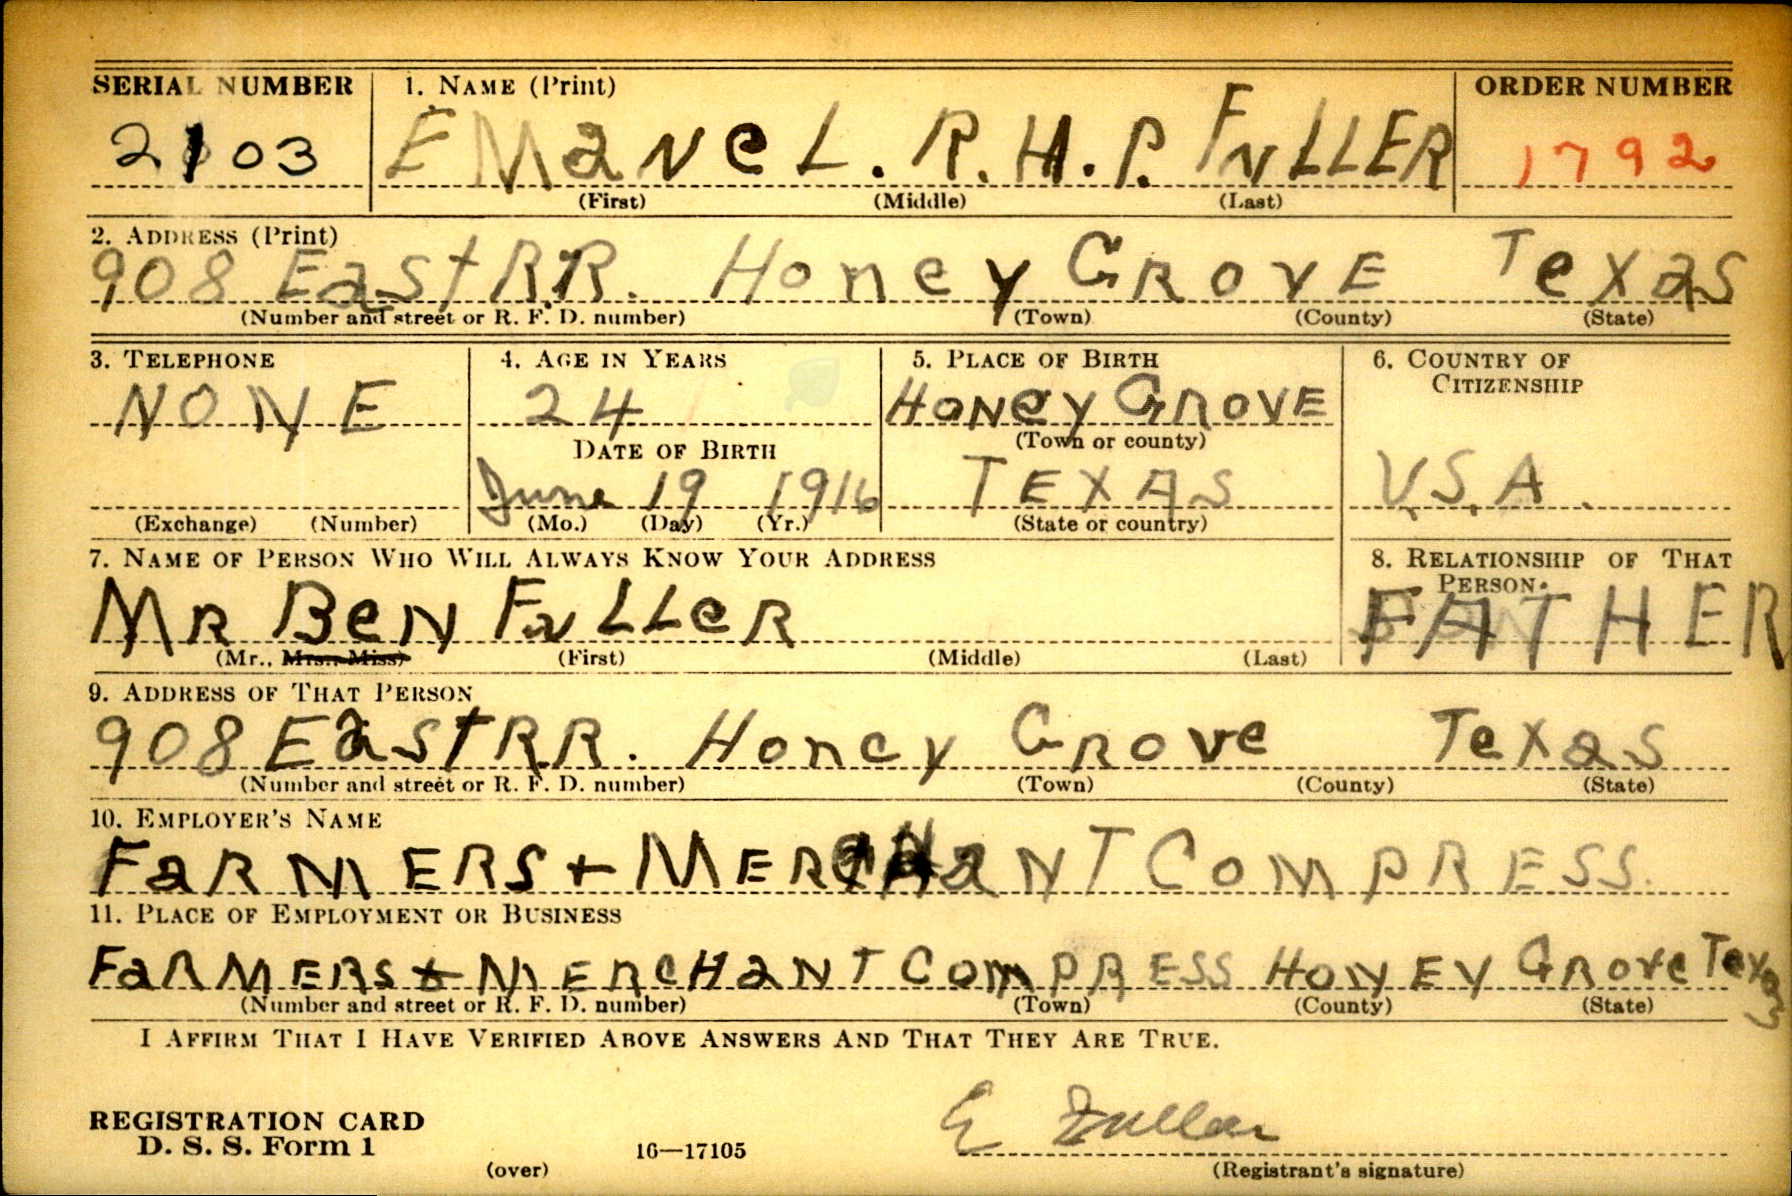 SERIAL NUMBER 1. NAME (Print) ORDER NUMBER
2103 EMaNeL. R. H. P. FuLLER 1792
(First) (Middle) (Last)
2. ADDRESS (Print)
908 East R.R. Honey GROVE Texas
(Number and street or R. F. D. number) (Town) (County) (State)
3. TELEPHONE 4. AGE IN YEARS 5. PLACE OF BIRTH 6. COUNTRY OF CITIZENSHIP
NONE 24 HoNey GROVE
DATE OF BIRTH (Town or county)
June 19 1916 TEXAS U.S.A.
(Exchange) (Number) (Mo.) (Day) (Yr.) (State or country)
7. NAME OF PERSON WHO WILL ALWAYS KNOW YOUR ADDRESS 8. RELATIONSHIP OF THAT PERSON
MR BeN FuLLeR FATHER
(Mr., Mrs., Miss) (First) (Middle) (Last)
9. ADDRESS OF THAT PERSON
908 East R.R. Honey GRove Texas
(Number and street or R. F. D. number) (Town) (County) (State)
10. EMPLOYER'S NAME
FaRMERS + MERCHaNT COMPRESS.
11. PLACE OF EMPLOYMENT OR BUSINESS
FaRMERS & MERCHaNT COMPRESS HONEY GRove Texas
(Number and street or R. F. D. number) (Town) (County) (State)
I AFFIRM THAT I HAVE VERIFIED ABOVE ANSWERS AND THAT THEY ARE TRUE.
REGISTRATION CARD
D. S. S. Form 1 16—17105 E Fuller
(over) (Registrant's signature)